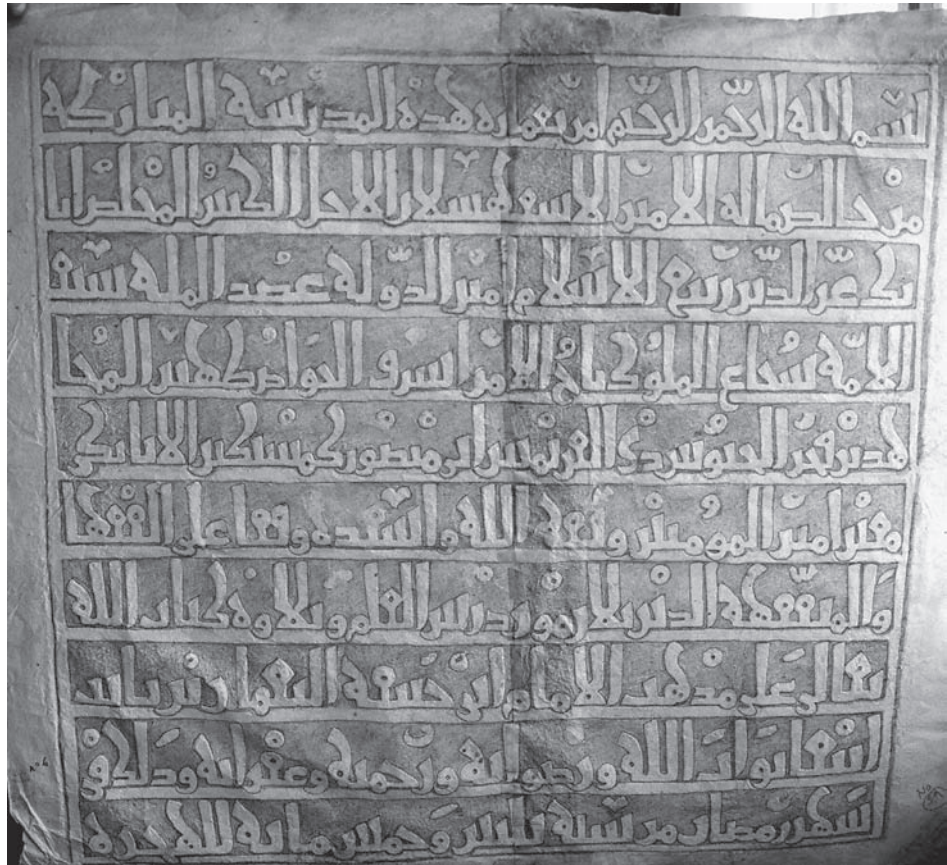 بسم الله الرحمن الرحيم امر بعماره هذه المدرسة المباركه
من خالص ماله الامير الاسفهسلار الاجل الكبير المخلص اتا
بك عز الدين ربيع الاسلام امين الدوله عضد المله سيف
الامه شجاع الملوك تاج الامرا شرف الخواص ظهير المجا
هدين فخر الجيوش ذي العزيمتين ابي منصور كمشتكين الاتابكي
معين امير المومنين وفقه الله واسعده وقفا على الفقها
والمتفقهه الذين يلازمون درس العلم وتلاوة كتاب الله
تعالى على مذهب الامام ابي حنيفه النعمان بن ثابت
ابتغا ثواب الله ورضوانه ورحمته وغفرانه وذلك في
شهر رمضان من سنة ثلثين وخمس مايه للهجرة